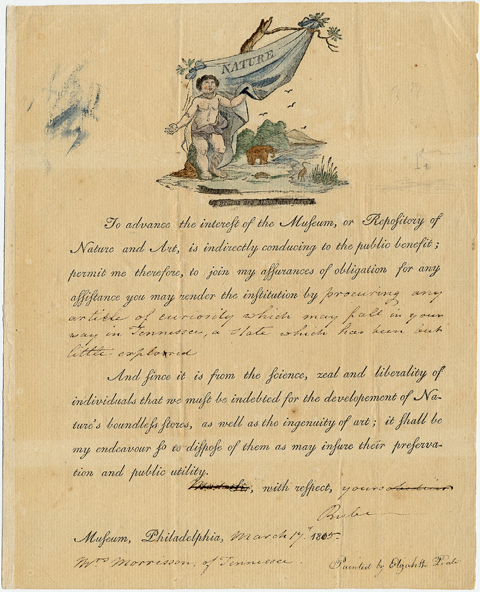 NATURE
To advance the interest of the Museum, or Repository of
Nature and Art, is indirectly conducing to the public benefit;
permit me therefore, to join my assurances of obligation for any
assistance you may render the institution by procuring any
article of curiosity which may fall in your
way in Tennessee, a State which has been but
little explored
And since it is from the science, zeal and liberality of
individuals that we must be indebted for the developement of Na-
ture's boundless stores, as well as the ingenuity of art; it shall be
my endeavour so to dispose of them as may insure their preserva-
tion and public utility.
, with respect, yours
Museum, Philadelphia, March 17. 1805.
Mrs Morrisson, of Tennessee.
Painted by Elizabeth Peale